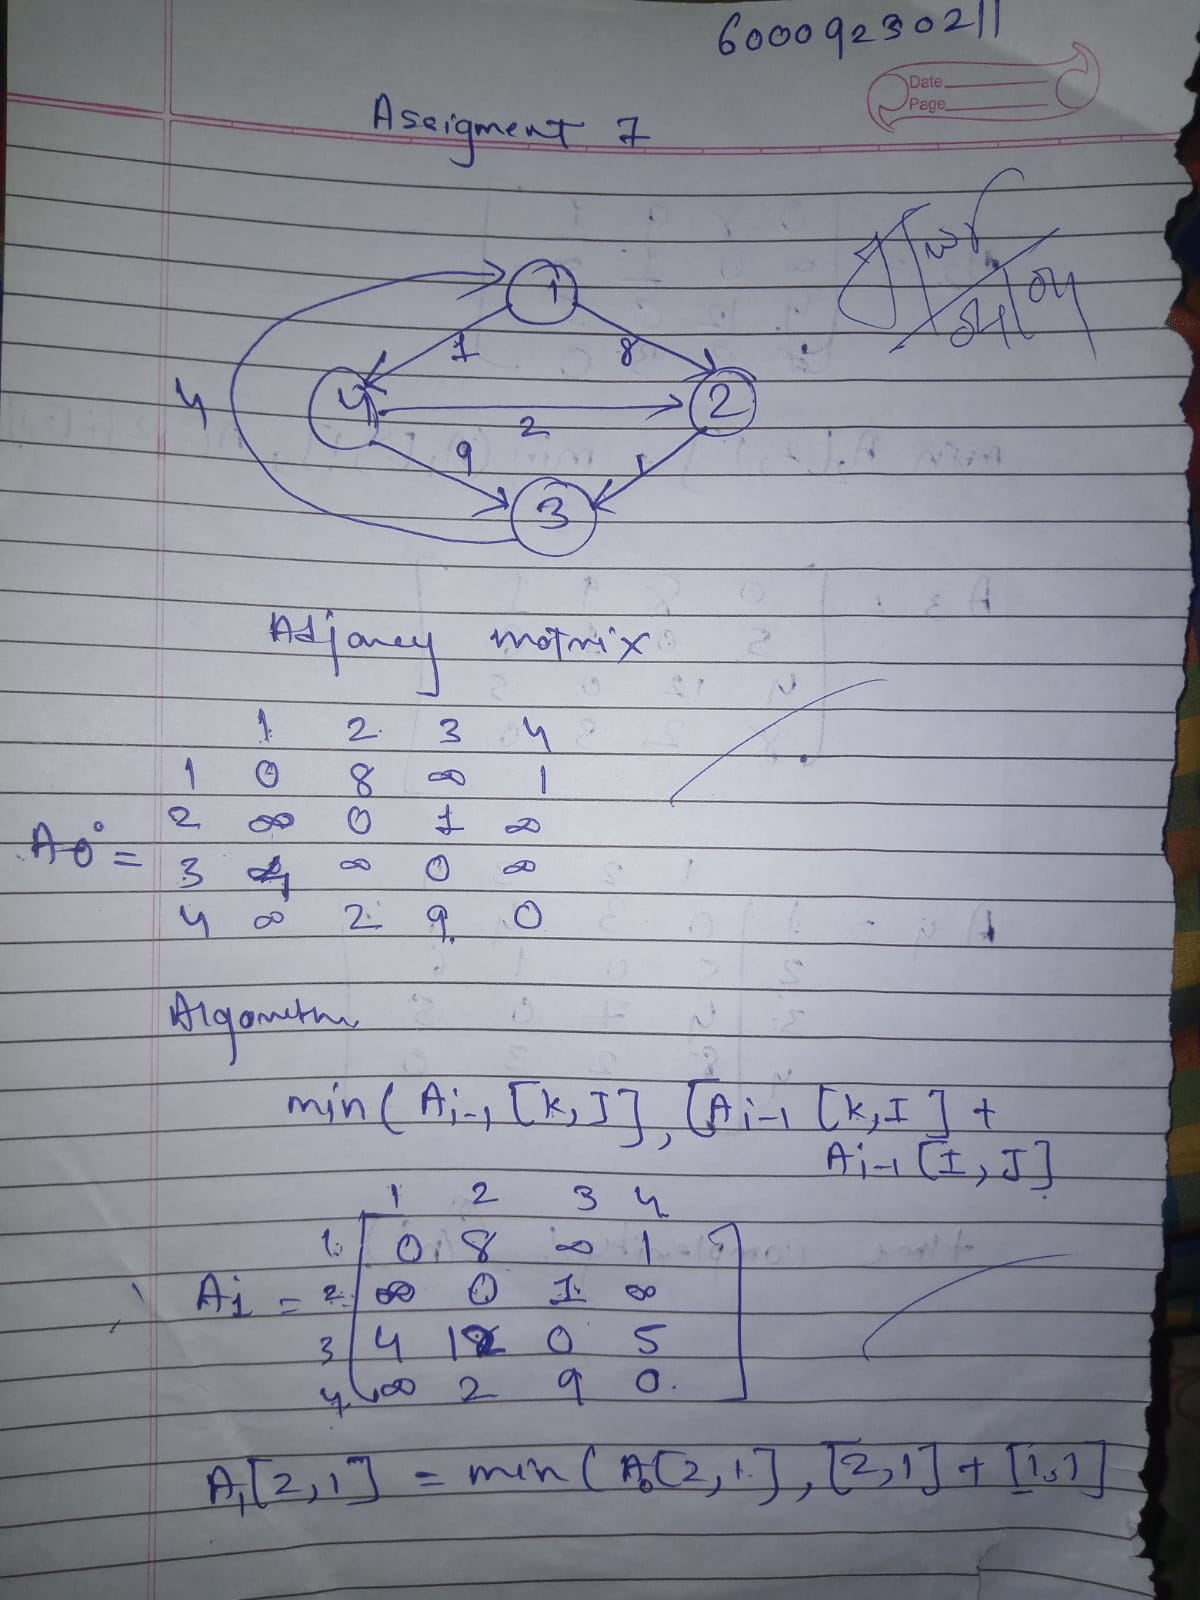 60009230211
Date
Page
Assigment 7
1
1
8
4
4
2
2
9
1
3
Adjancy matrix
1 2 3 4
1 0 8 ∞ 1
2 ∞ 0 1 ∞
A0 =
3 4 ∞ 0 ∞
4 ∞ 2 9 0
min( Ai-1 [K,J], [Ai-1 [K,I] +
Ai-1 [I, J]
1 2 3 4
1. 0 8 ∞ 1
A1 = 2. ∞ 0 1 ∞
3 4 12 0 5
4 ∞ 2 9 0.
A1[2,1] = min( A0[2,1], [2,1] + [1,1]